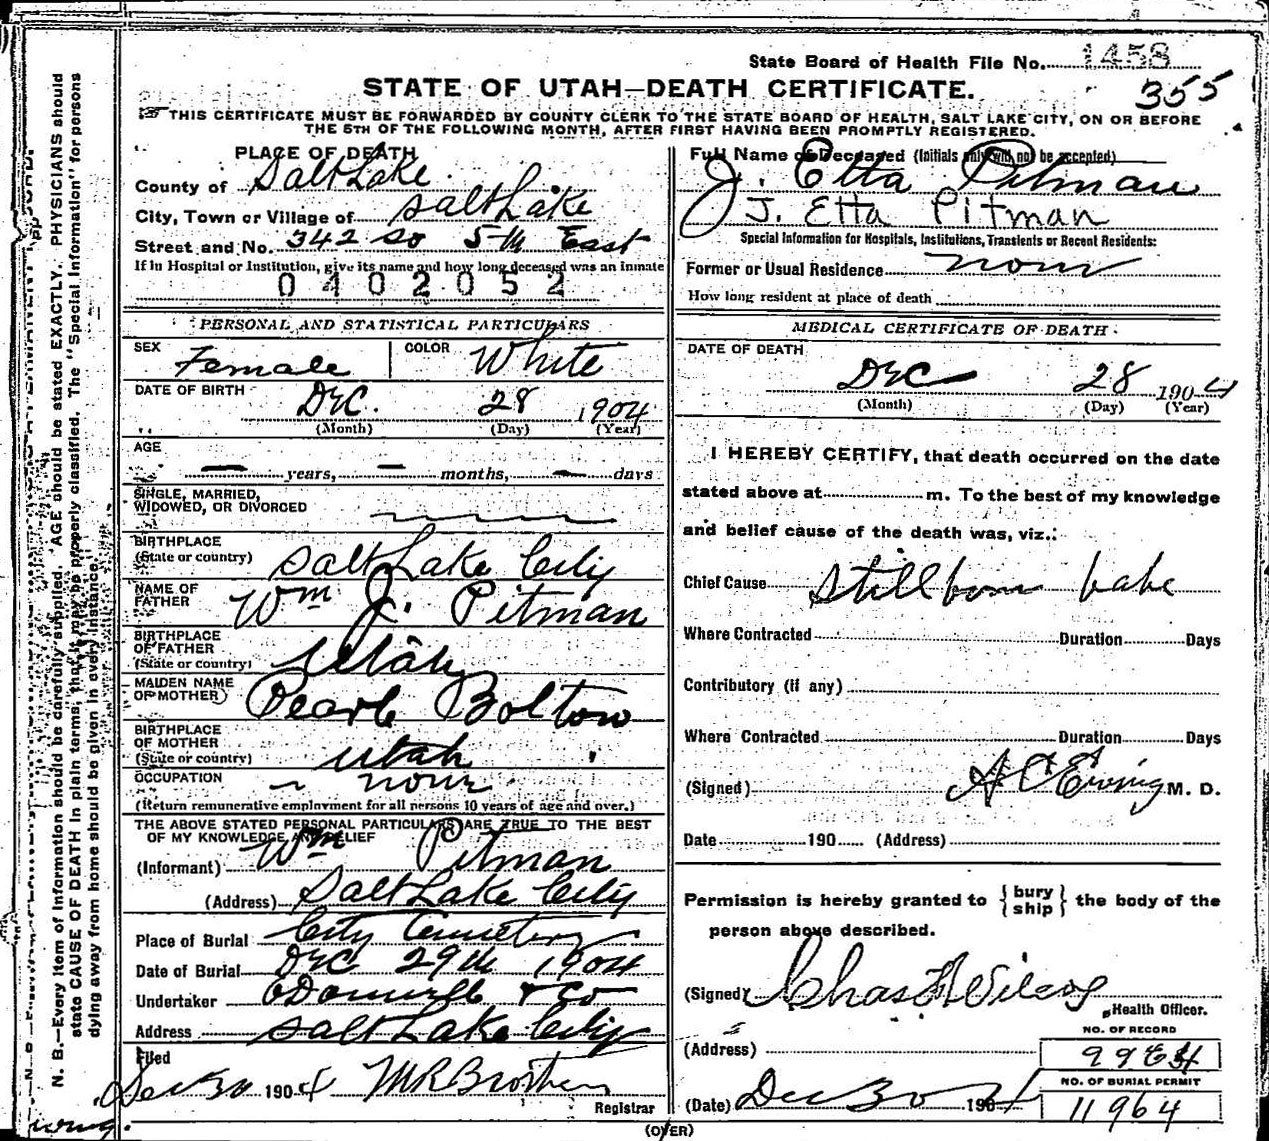 State Board of Health File No. 1458
355
STATE OF UTAH—DEATH CERTIFICATE.
THIS CERTIFICATE MUST BE FORWARDED BY COUNTY CLERK TO THE STATE BOARD OF HEALTH, SALT LAKE CITY, ON OR BEFORE
THE 5TH OF THE FOLLOWING MONTH, AFTER FIRST HAVING BEEN PROMPTLY REGISTERED.
PLACE OF DEATH
County of Salt Lake
City, Town or Village of Salt Lake
Street and No. 342 So 5th East
If in Hospital or Institution, give its name and how long deceased was an inmate
0402052
PERSONAL AND STATISTICAL PARTICULARS
SEX Female COLOR White
DATE OF BIRTH Dec. 28 1904
(Month) (Day) (Year)
AGE
— years, — months, — days
SINGLE, MARRIED,
WIDOWED, OR DIVORCED
BIRTHPLACE
(State or country) Salt Lake City
NAME OF
FATHER Wm J. Pitman
BIRTHPLACE
OF FATHER
(State or country) Utah
MAIDEN NAME
OF MOTHER Pearl Bolton
BIRTHPLACE
OF MOTHER
(State or country) Utah
OCCUPATION none
(Return remunerative employment for all persons 10 years of age and over.)
THE ABOVE STATED PERSONAL PARTICULARS ARE TRUE TO THE BEST
OF MY KNOWLEDGE AND BELIEF
(Informant) Wm Pitman
(Address) Salt Lake City
Place of Burial City Cemetery
Date of Burial Dec 29th 1904
Undertaker O'Donnell & Co
Address Salt Lake City
Filed
Dec 30 1904
Registrar
Full Name of Deceased (Initials only will not be accepted)
J. Etta Pitman
J. Etta Pitman
Special Information for Hospitals, Institutions, Transients or Recent Residents:
Former or Usual Residence none
How long resident at place of death
MEDICAL CERTIFICATE OF DEATH
DATE OF DEATH
Dec 28 1904
(Month) (Day) (Year)
I HEREBY CERTIFY, that death occurred on the date
stated above at m. To the best of my knowledge
and belief cause of the death was, viz.:
Chief Cause Stillborn babe
Where Contracted Duration Days
Contributory (if any)
Where Contracted Duration Days
(Signed) A C Ewing M. D.
Date 190 (Address)
Permission is hereby granted to {bury ship} the body of the
person above described.
(Signed) Chas F Wilcox
Health Officer.
NO. OF RECORD
(Address)
NO. OF BURIAL PERMIT
(Date) Dec 30 1904 11964
(OVER)
N. B.—Every item of information should be carefully supplied. AGE should be stated EXACTLY. PHYSICIANS should
state CAUSE OF DEATH in plain terms, that it may be properly classified. The "Special Information" for persons
dying away from home should be given in every instance.